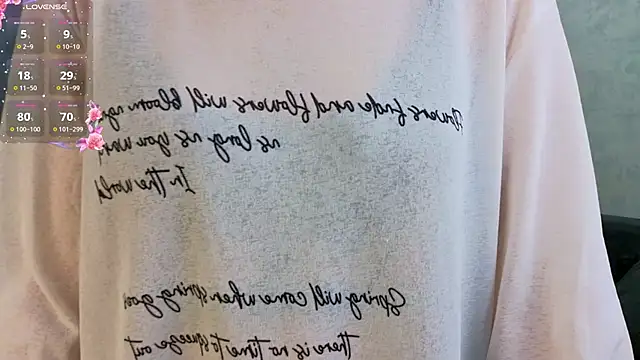 LOVENSE
5s
2~9
9s
10~10
18s
11~50
29s
51~99
80s
100~100
70s
101~299
Flowers fade and flowers will bloom
as long as you
In the world
Spring will come when spring goes
there is no time to squeeze out